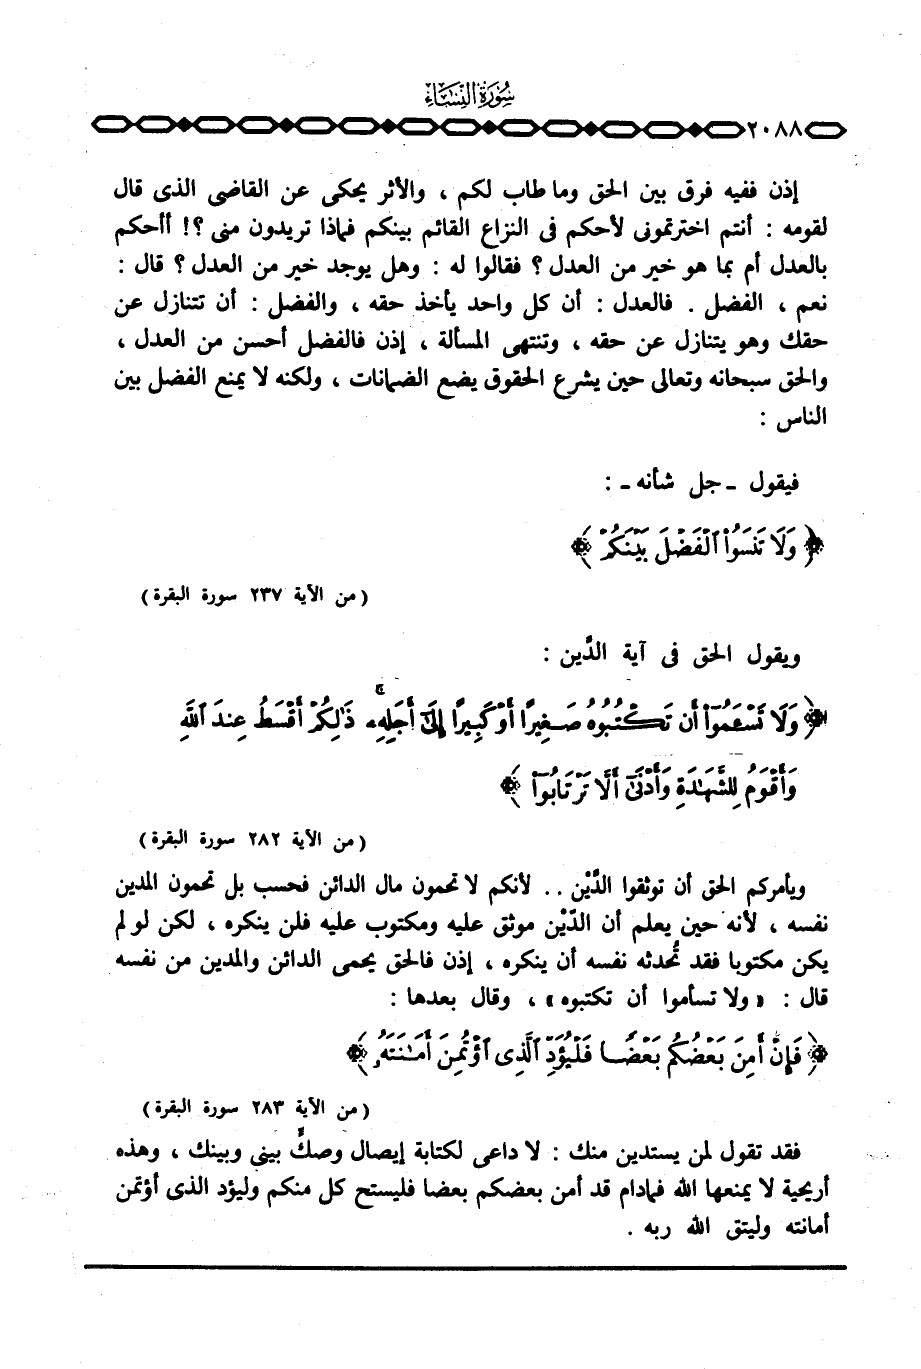 سُورَةُ النِّسَاءِ
٢٠٨٨
إذن ففيه فرق بين الحق وما طاب لكم ، والأثر يحكى عن القاضى الذى قال
لقومه : أنتم اخترتمونى لأحكم فى النزاع القائم بينكم فماذا تريدون منى ؟! أأحكم
بالعدل أم بما هو خير من العدل ؟ فقالوا له : وهل يوجد خير من العدل ؟ قال :
نعم ، الفضل . فالعدل : أن كل واحد يأخذ حقه ، والفضل : أن تتنازل عن
حقك وهو يتنازل عن حقه ، وتنتهى المسألة ، إذن فالفضل أحسن من العدل ،
والحق سبحانه وتعالى حين يشرع الحقوق يضع الضمانات ، ولكنه لا يمنع الفضل بين
الناس :
فيقول ـ جل شأنه ـ :
﴿ وَلَا تَنسَوُا۟ ٱلْفَضْلَ بَيْنَكُمْ ﴾
( من الآية ٢٣٧ سورة البقرة )
ويقول الحق فى آية الدَّين :
﴿ وَلَا تَسْـَٔمُوٓا۟ أَن تَكْتُبُوهُ صَغِيرًا أَوْ كَبِيرًا إِلَىٰٓ أَجَلِهِۦ ۚ ذَٰلِكُمْ أَقْسَطُ عِندَ ٱللَّهِ
وَأَقْوَمُ لِلشَّهَـٰدَةِ وَأَدْنَىٰٓ أَلَّا تَرْتَابُوٓا۟ ﴾
( من الآية ٢٨٢ سورة البقرة )
ويأمركم الحق أن توثقوا الدَّيْن .. لأنكم لا تحمون مال الدائن فحسب بل تحمون المدين
نفسه ، لأنه حين يعلم أن الدّيْن موثق عليه ومكتوب عليه فلن ينكره ، لكن لو لم
يكن مكتوبا فقد تُحدثه نفسه أن ينكره ، إذن فالحق يحمى الدائن والمدين من نفسه
قال : « ولا تسأموا أن تكتبوه » ، وقال بعدها :
﴿ فَإِنْ أَمِنَ بَعْضُكُم بَعْضًا فَلْيُؤَدِّ ٱلَّذِى ٱؤْتُمِنَ أَمَـٰنَتَهُۥ ﴾
( من الآية ٢٨٣ سورة البقرة )
فقد تقول لمن يستدين منك : لا داعى لكتابة إيصال وصكٍّ بينى وبينك ، وهذه
أريحية لا يمنعها الله فمادام قد أمن بعضكم بعضا فليستح كل منكم وليؤد الذى أؤتمن
أمانته وليتق الله ربه .